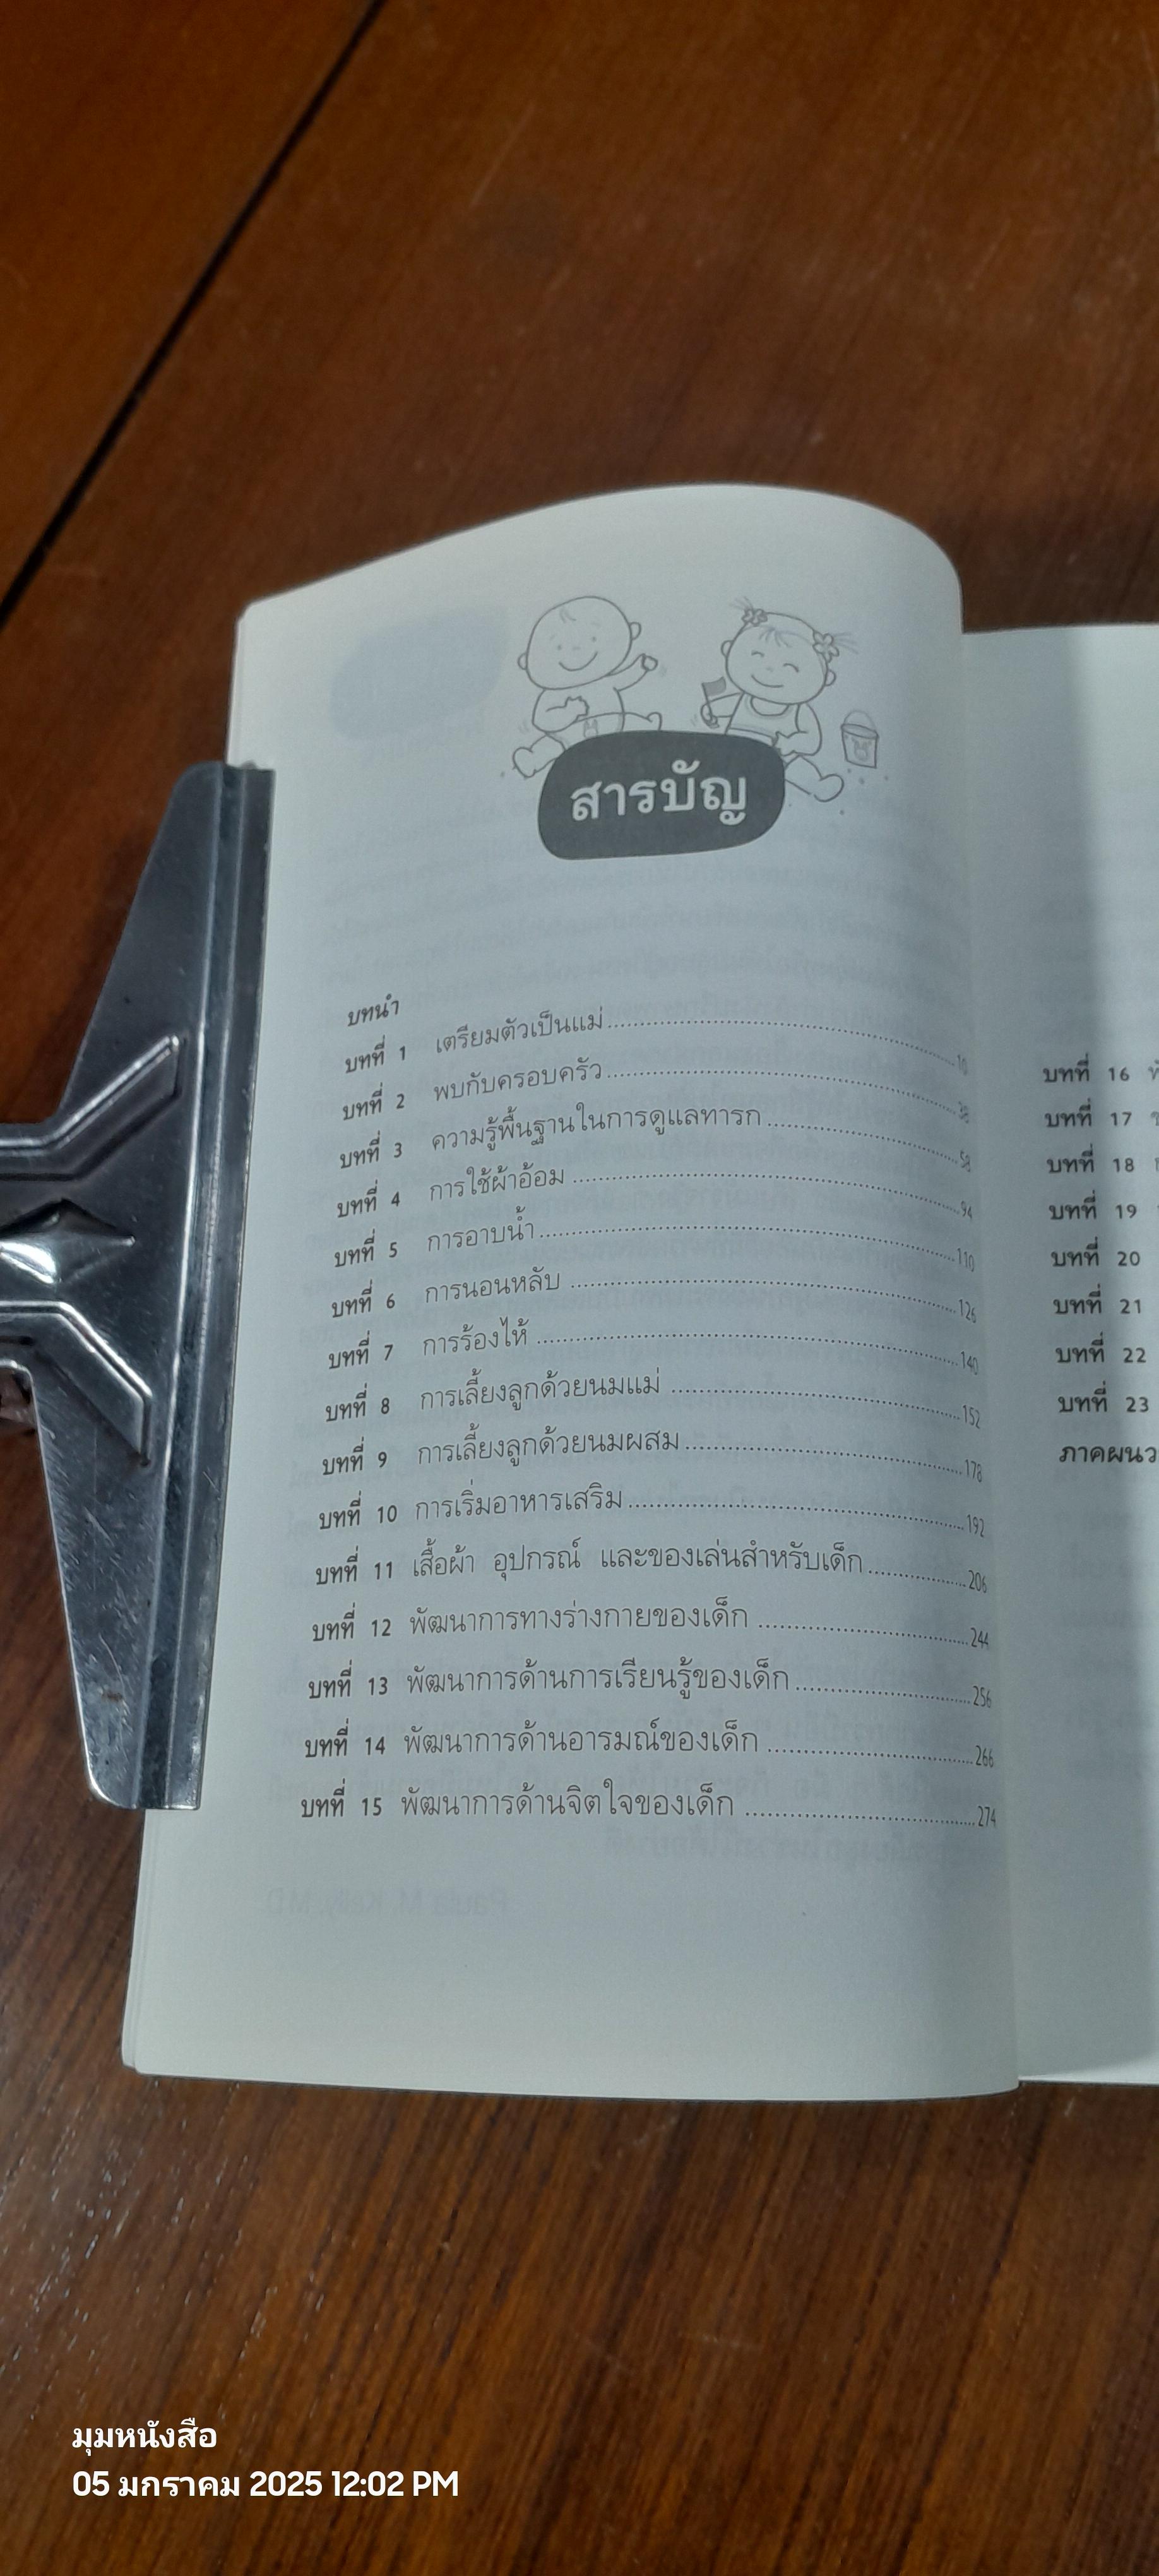 สารบัญ
บทนำ
บทที่ 1 เตรียมตัวเป็นแม่ 10
บทที่ 2 พบกับครอบครัว 38
บทที่ 3 ความรู้พื้นฐานในการดูแลทารก 58
บทที่ 4 การใช้ผ้าอ้อม 94
บทที่ 5 การอาบน้ำ 110
บทที่ 6 การนอนหลับ 126
บทที่ 7 การร้องไห้ 140
บทที่ 8 การเลี้ยงลูกด้วยนมแม่ 152
บทที่ 9 การเลี้ยงลูกด้วยนมผสม 178
บทที่ 10 การเริ่มอาหารเสริม 192
บทที่ 11 เสื้อผ้า อุปกรณ์ และของเล่นสำหรับเด็ก 206
บทที่ 12 พัฒนาการทางร่างกายของเด็ก 244
บทที่ 13 พัฒนาการด้านการเรียนรู้ของเด็ก 256
บทที่ 14 พัฒนาการด้านอารมณ์ของเด็ก 266
บทที่ 15 พัฒนาการด้านจิตใจของเด็ก 274
บทที่ 16
บทที่ 17
บทที่ 18
บทที่ 19
บทที่ 20
บทที่ 21
บทที่ 22
บทที่ 23
ภาคผนว
มุมหนังสือ
05 มกราคม 2025 12:02 PM